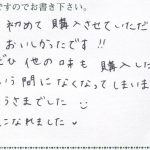 ですのでお書き下さい。
初めて購入させていただ
おいしかったです!!
ぜひ他の味も購入した
いう間になくなってしまいま
うさまでした
になれました